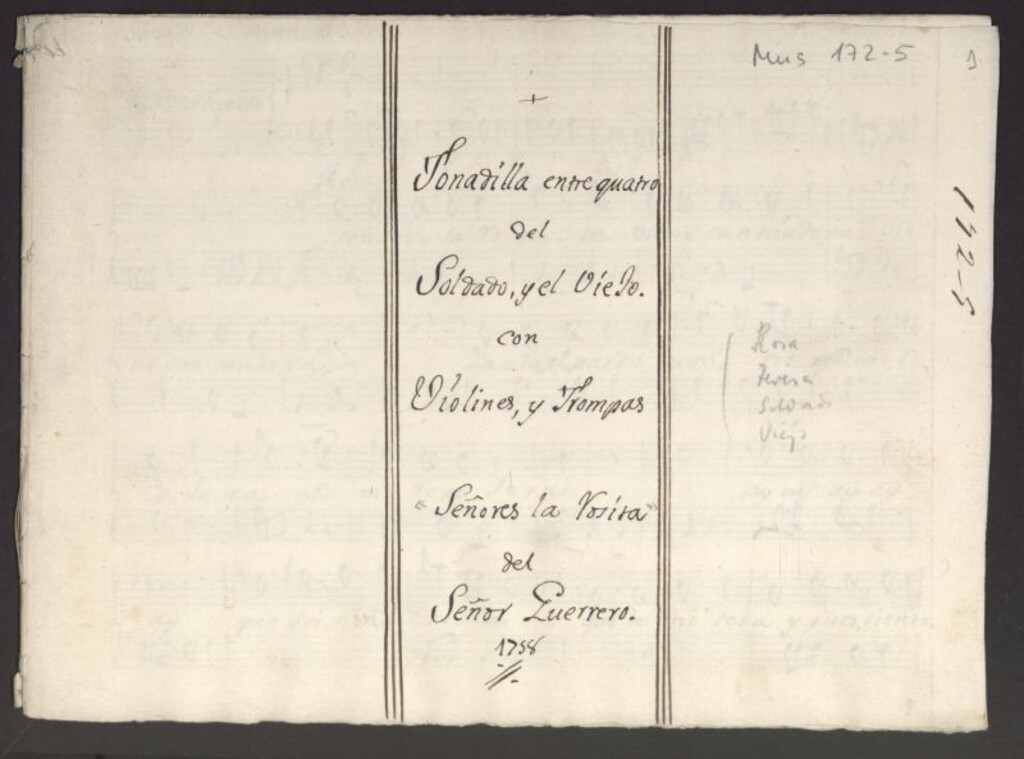 Mus 172-5
1
+
Tonadilla entre quatro
del
Soldado, y el Viejo.
con
Violines, y Trompas
"Señores la Rosira"
del
Señor Guerrero.
1758
Rosa
Teresa
Soldado
Viejo
172-5